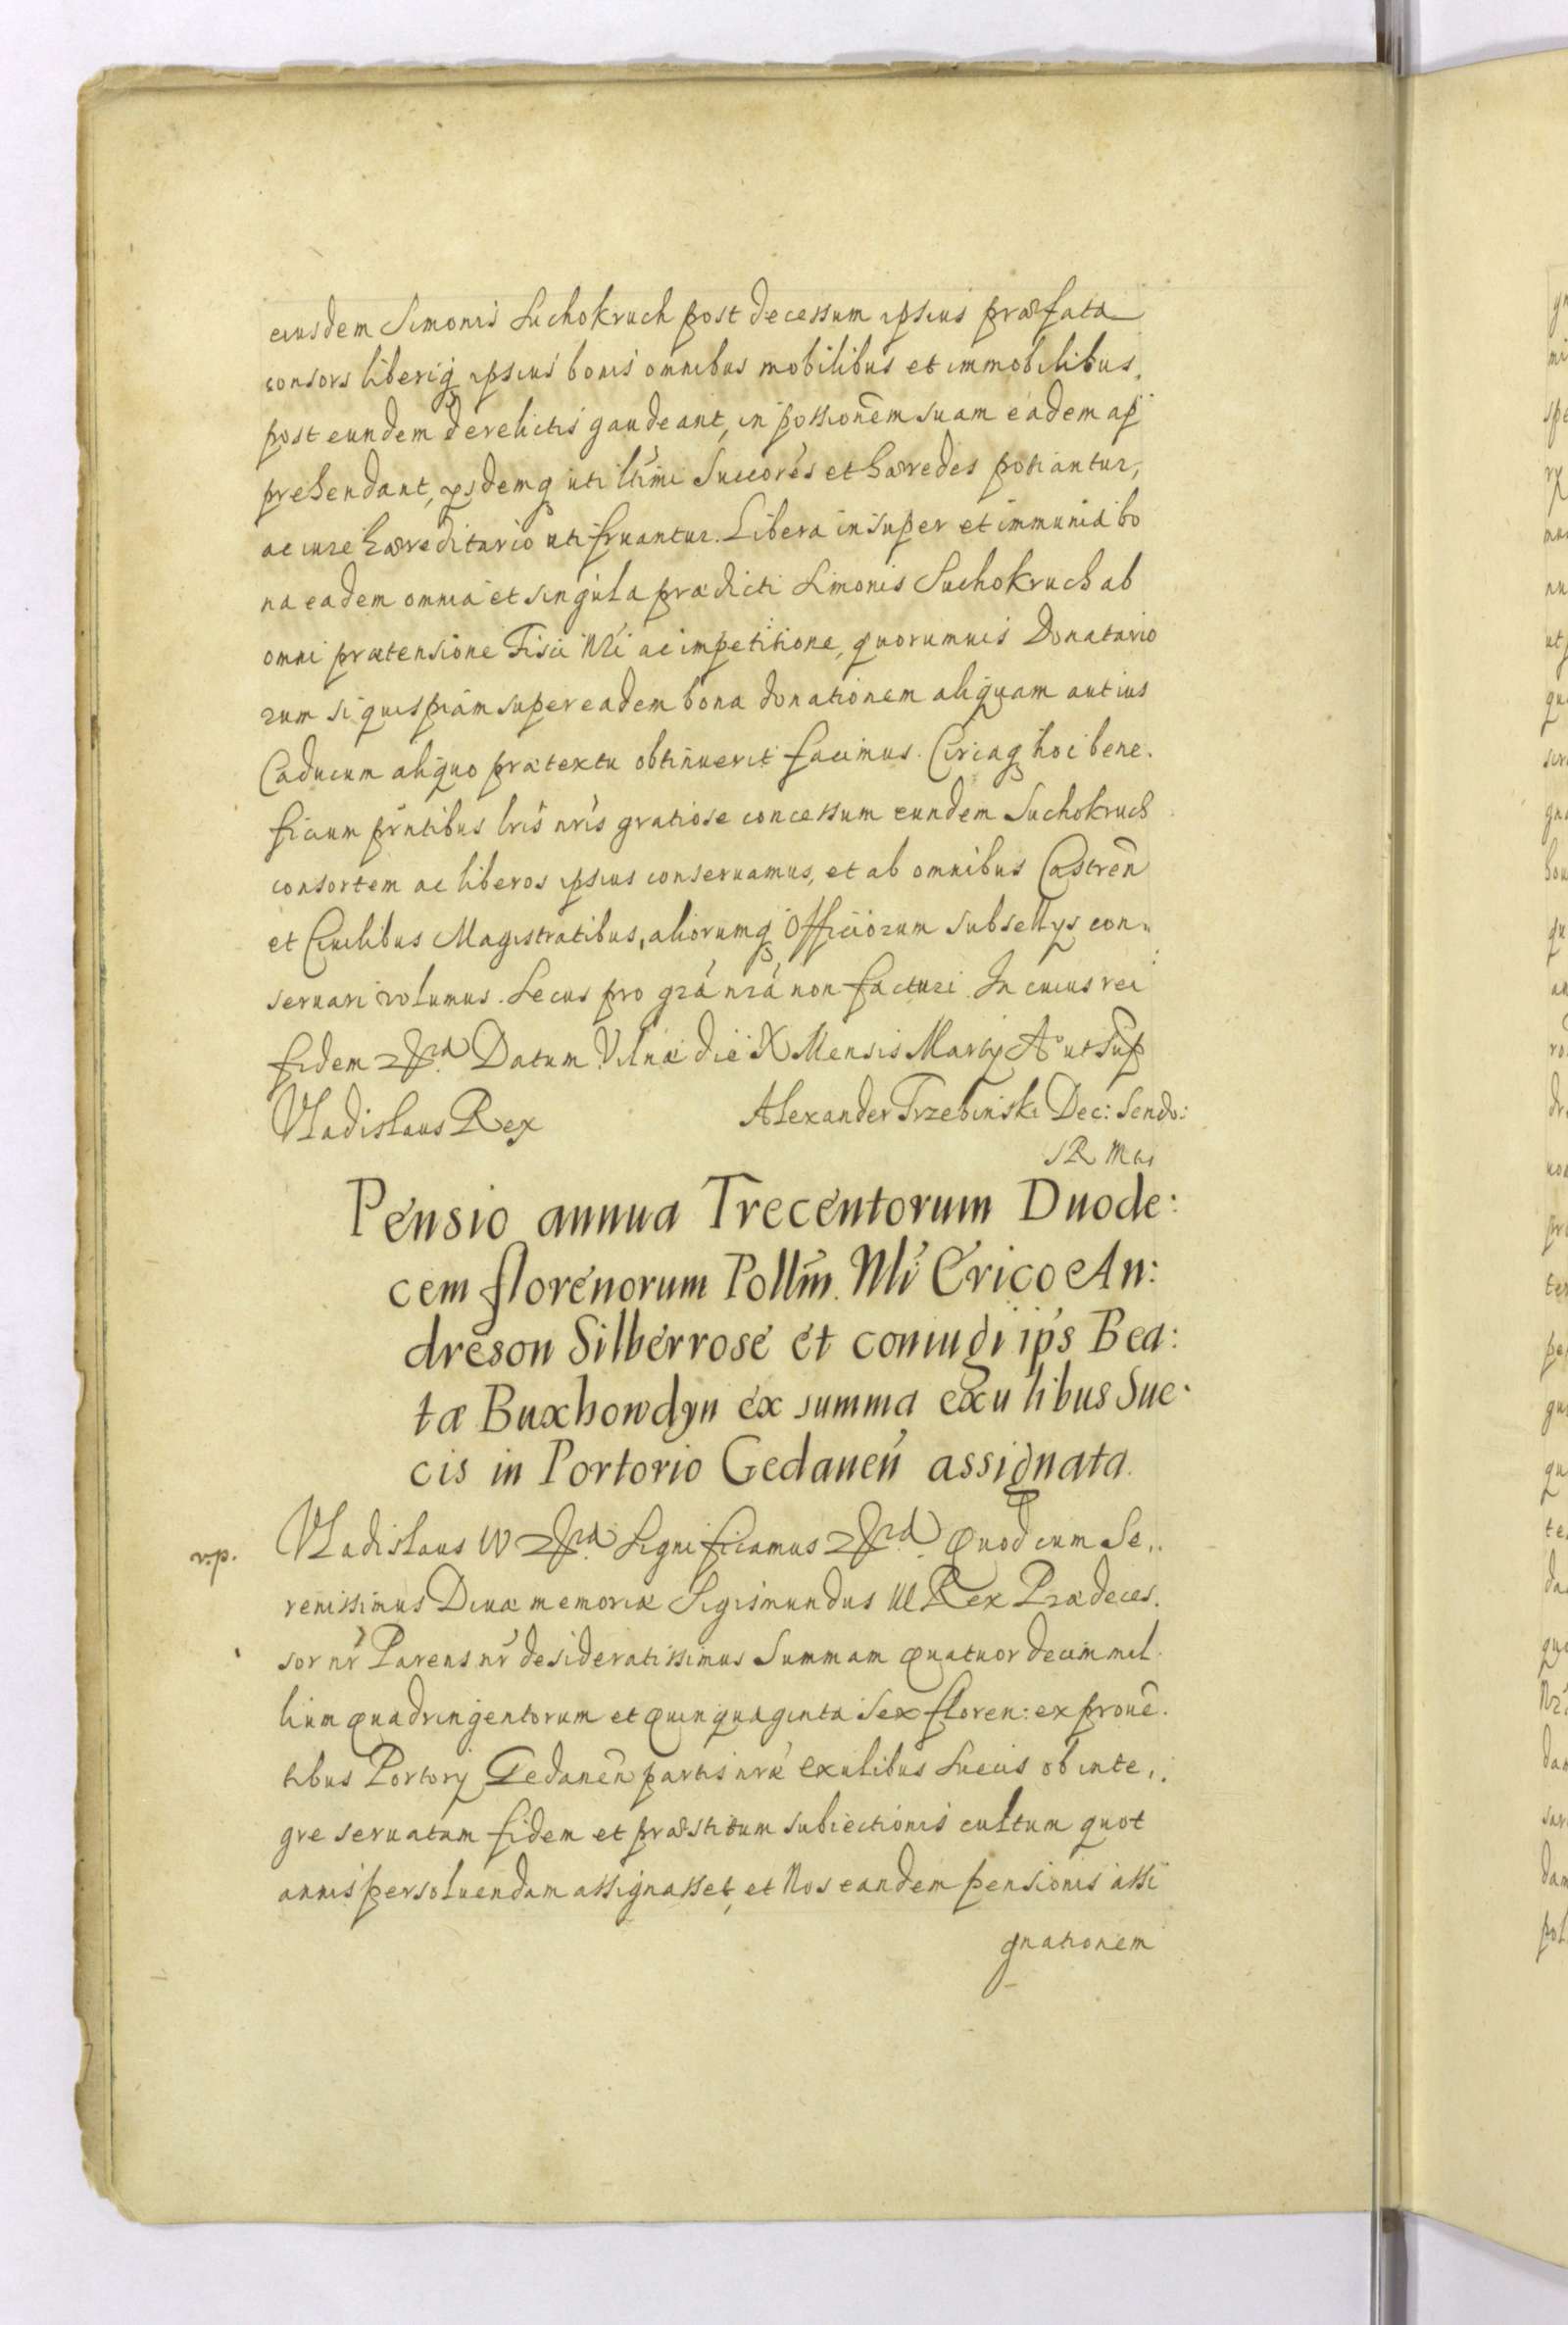 eiusdem Simonis Suchokruch post decessum ipsius præfata
consors liberiq ipsius bonis omnibus mobilibus et immobilibus,
post eundem derelictis gaudeant, in possionēm suam eadem ap
prehendant, ysdemq uti ltimi Succorēs et hæredes potiantur,
ac iure hæreditario uti fruantur. Libera insuper et immunia bo
na eadem omnia et singula prædicti Simonis Suchokruch ab
omni prætensione Fisci Nri ac impetitione, quorumuis Donatario
rum si quispiam super eadem bona donationem aliquam aut ius
Caducum aliquo prætextu obtinuerit facimus. Circaq hoc bene.
ficium prntibus lris nris gratiose concessum eundem Suchokruch
consortem ac liberos ipsius conseruamus, et ab omnibus Castreñ
et Ciuilibus Magistratibus, aliorumq Officiorum subsellys con„
seruari volumus. Secus pro gra nra non facturi. In cuius rei
fidem Datum Vilnæ die X Mensis Marty Aº ut Sup
Vladislaus Rex Alexander Trzebinski Dec: Sendo:
SR Mtis
Pensio annua Trecentorum Duode:
cem florenorum Pollm. Nli Erico An:
dreson Silberrose et coniugi ips Bea:
tæ Buxhowdyn ex summa exulibus Sue.
cis in Portorio Gedaneñ assignata.
v.p. Vladislaus IV Significamus Quod cum Se„
renissimus Diuæ memoriæ Sigismundus III Rex Prædeces.
sor nr Parens nr desideratissimus Summam Quatuor decim mil
lium Quadringentorum et Quinquaginta Sex floren: ex prouē.
tibus Portory Gedaneñ partis nræ exulibus Suecis ob inte„
gre seruatam fidem et præstitum subiectionis cultum quot
annis persoluendam assignasset, et Nos eandem pensionis assi
gnationem